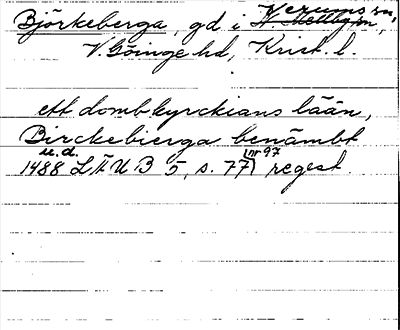 Björkeberga, gd. i Verums sn,
V. Göinge hd, Krist. l.
ett dombkyrckians lään,
Birckebierga benämbt
u.d.
1488 LÄUB 5, s. 77 (nr 97) regest.